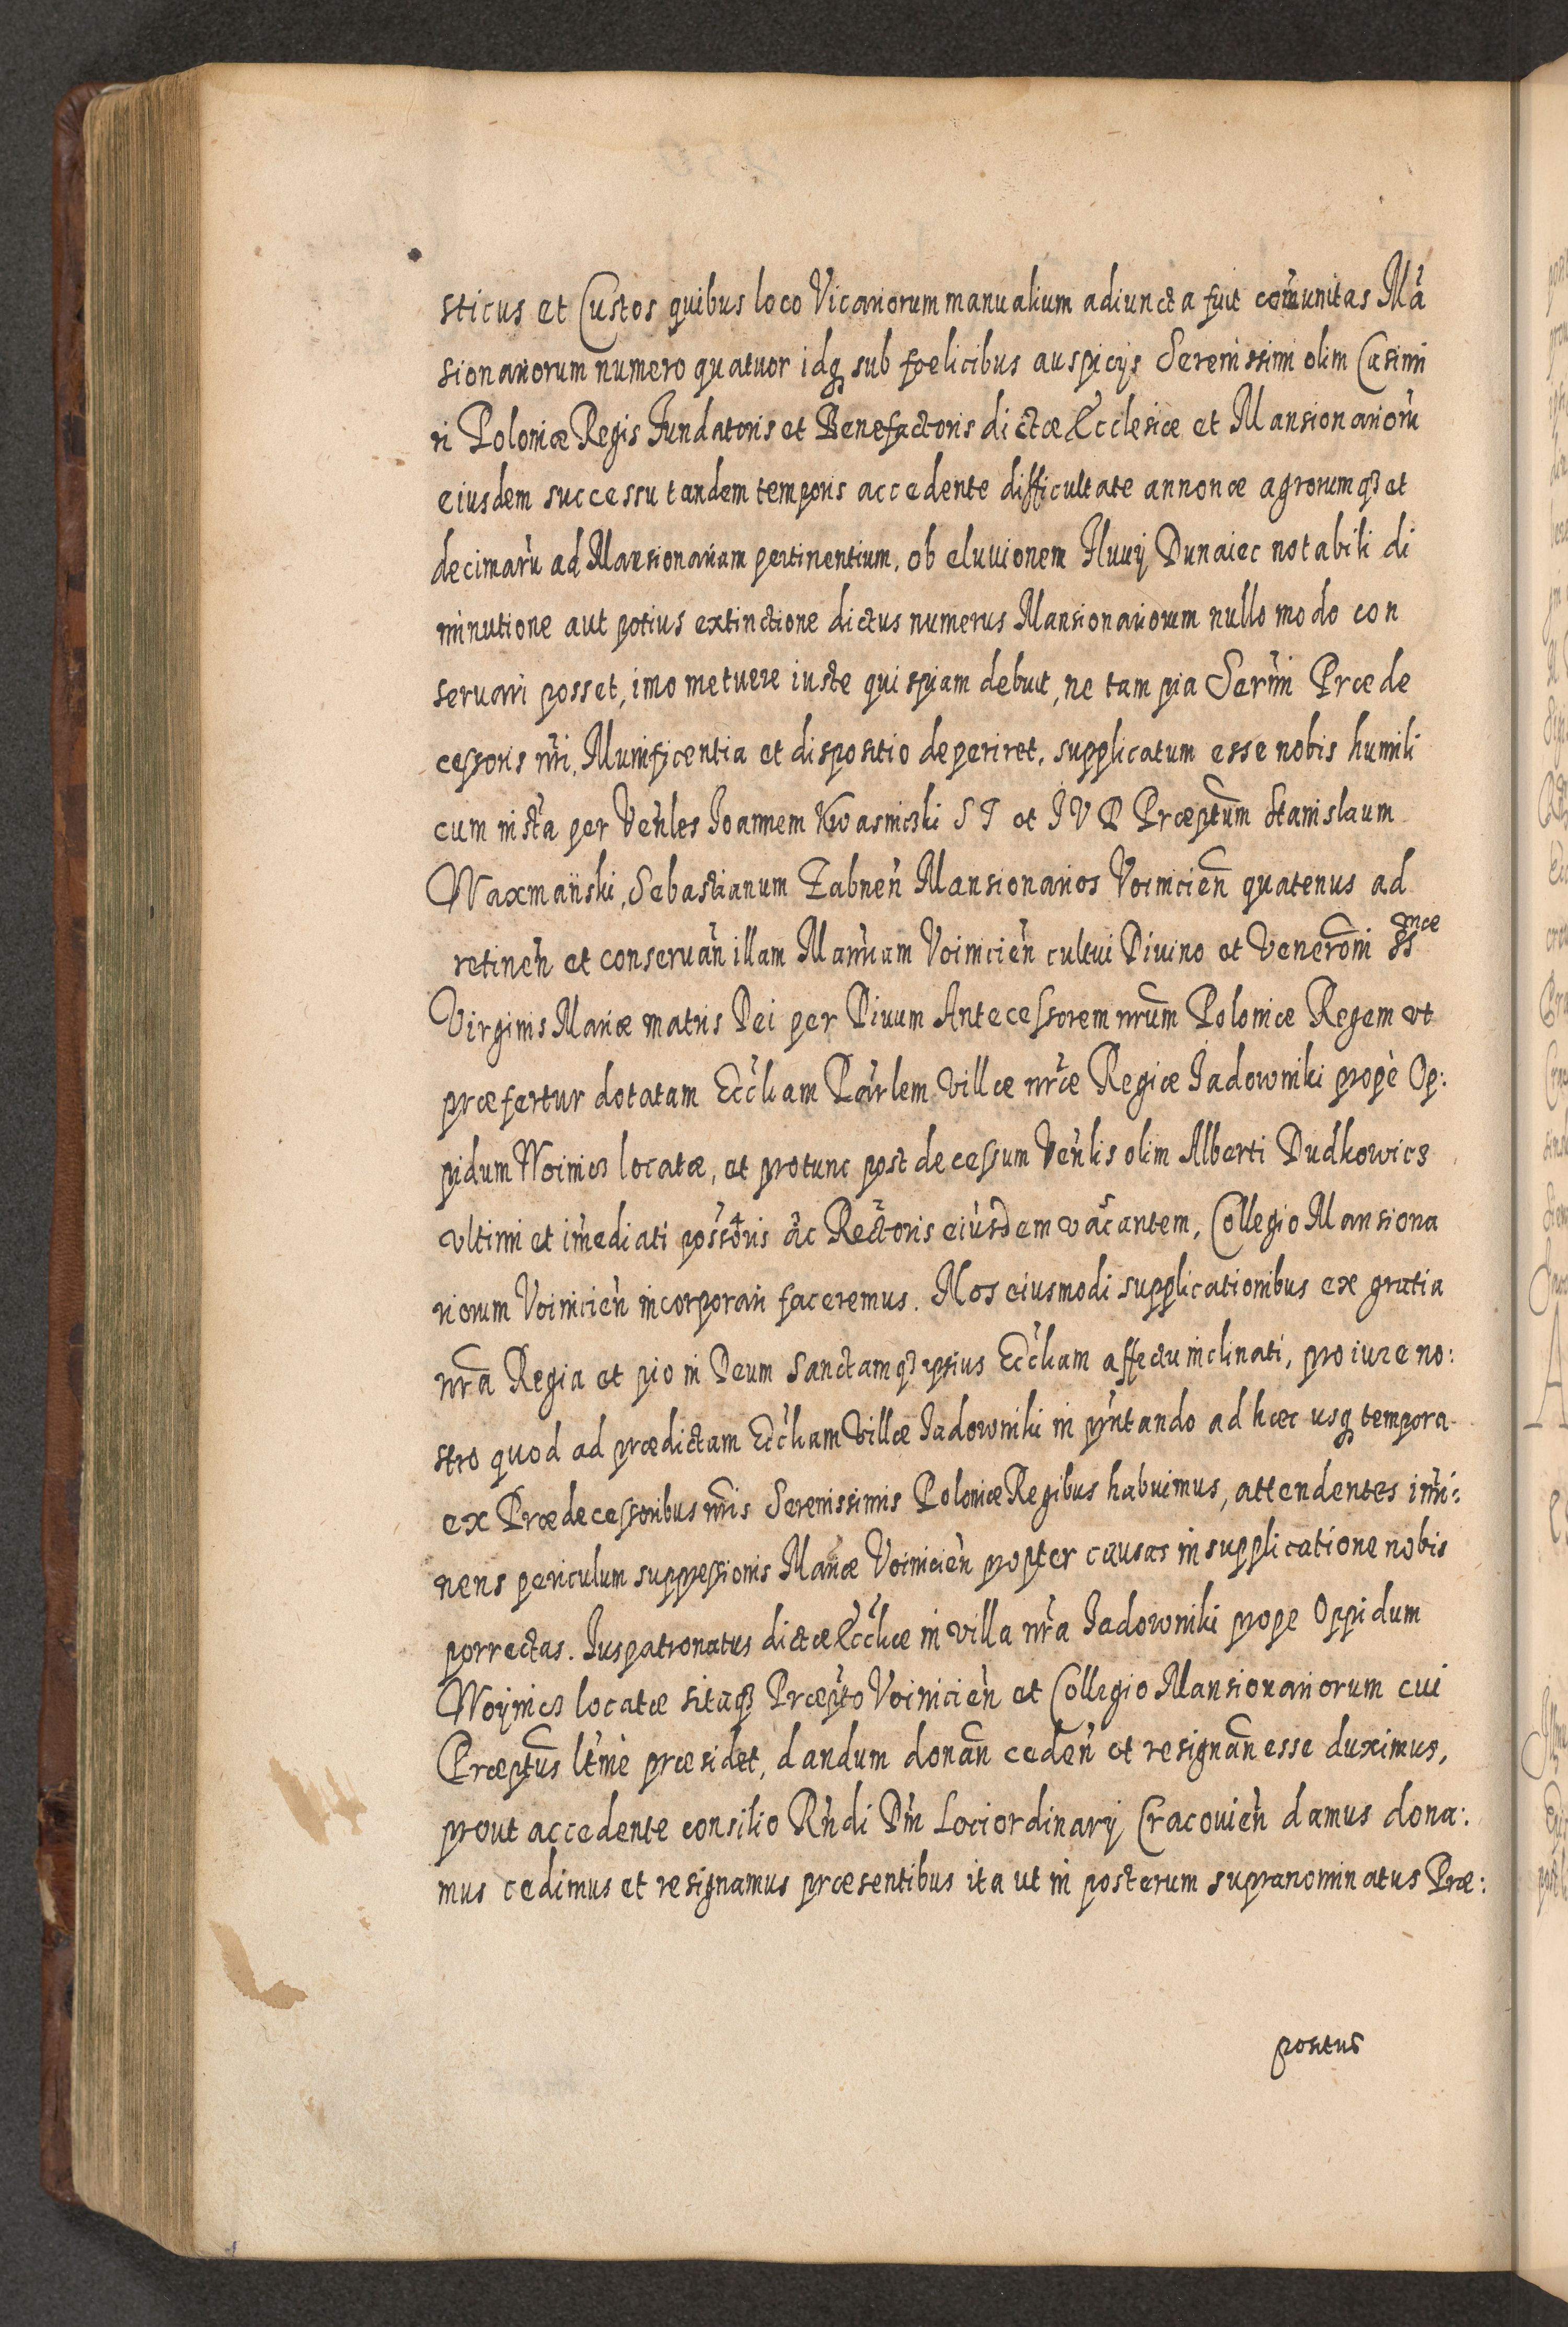 sticus et Custos quibus loco Vicariorum manualium adiuncta fuit com̃unitas Mã
sionariorum numero quatuor idq̨ sub fœlicibus auspicijs Serenissimi olim Casimi
ri Poloniæ Regis Fundatoris et Benefactoris dictæ Ecclesiæ et Mansionariorũ
eiusdem successu tandem temporis accedente difficultate annonæ agrorumqʒ et
decimarũ ad Mansionariam pertinentium, ob eluvionem Fluvij Dunaiec notabili di
minutione aut potius extinctione dictus numerus Mansionariorum nullo modo con
servari posset, imo metuere iuste quispiam debuit, ne tam pia Serm̃i Præde
cessoris nr̃i, Munificentia et dispositio deperiret, supplicatum esse nobis humili
cum inst̃a per Veñles Joannem Kwasnicski S T et I V D Præpt̃um Stanislaum
Waxmański, Sebastianum Zabneñ Mansionarios Voiniciеñ quatenus ad
retineñ et conservañ illam Mañriam Voinicieñ cultui Divino et Venerõni Ssmæ
Virginis Mariæ matris Dei per Divum Antecessorem nr̃um Poloniæ Regem vt
præfertur dotatam Ecc̃liam Par̃lem villæ nr̃æ Regiæ Jadowniki propè Op:
pidum Woinicz locatæ, et protunc post decessum Veñlis olim Alberti Dudkowicz
vltimi et im̃ediati possõris ac Rectoris eiusdem vacantem, Collegio Mansiona
riorum Voinicieñ incorporari faceremus. Nos eiusmodi supplicationibus ex gratia
nr̃a Regia et pio in Deum Sanctamqʒ ipsius Ecc̃liam affectu inclinati, pro iure no:
stro quod ad prædictam Ecc̃liam villæ Jadowniki in pr̃ntando ad hæc usq̨ tempora
ex Prædecessoribus nr̃is Serenissimis Poloniæ Regibus habuimus, attendentes im̃i:
nens periculum suppressionis Mañæ Voinicieñ propter causas in supplicatione nobis
porrectas. Juspatronatus dictæ Ecc̃liæ in villa nr̃a Jadowniki prope Oppidum
Woÿnicz locatæ sitæqʒ Præpt̃o Voinicieñ et Collegio Mansionariorum cui
Præpt̃us lt̃mè præsidet, dandum donañ cedeñ et resignañ esse duximus,
prout accedente consilio Rñdi Dñi Lociordinarij Cracovieñ damus dona:
mus cedimus et resignamus præsentibus ita ut in posterum supranominatus Præ:
positus